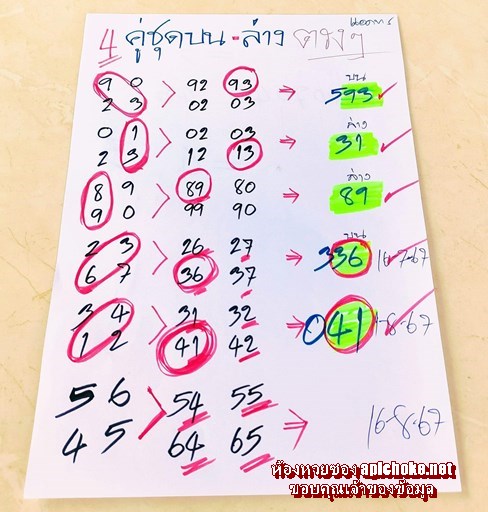 4 คู่ชุดบน-ล่าง ตรงๆ
บน
9 0 92 93 ⇒ 593
2 3 02 03
ล่าง
0 1 02 03 ⇒ 31
2 3 12 13
ล่าง
8 9 89 80 ⇒ 89
9 0 99 90
บน
2 3 26 27 ⇒ 336 16-7-67
6 7 36 37
3 4 31 32 ⇒ 041 1-8-67
1 2 41 42
5 6 54 55 ⇒ 16-8-67
4 5 64 65
ห้องหวยซอง apichoke.net
ขอบคุณเจ้าของข้อมูล